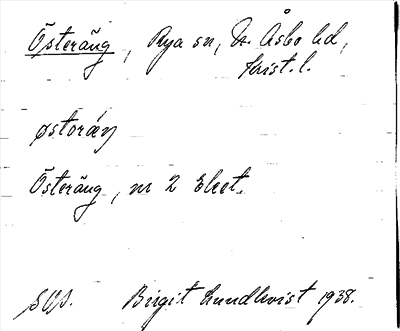 Österäng, Rya sn, N. Åsbo hd,
Krist. l.
østoräŋ
Österäng, nr 2 Eket.
Birgit Lundkvist 1938.